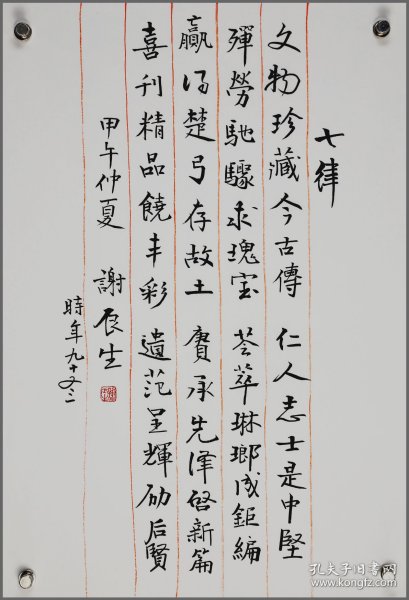 七律
文物珍藏今古傳 仁人志士是中堅
殫勞馳驟求瑰宝 荟萃琳瑯成鉅編
贏得楚弓存故土 賡承先澤啓新篇
喜刊精品饒丰彩 遺范呈輝励后賢
甲午仲夏 謝辰生
時年九十又三
孔夫子旧书网
www.kongfz.com